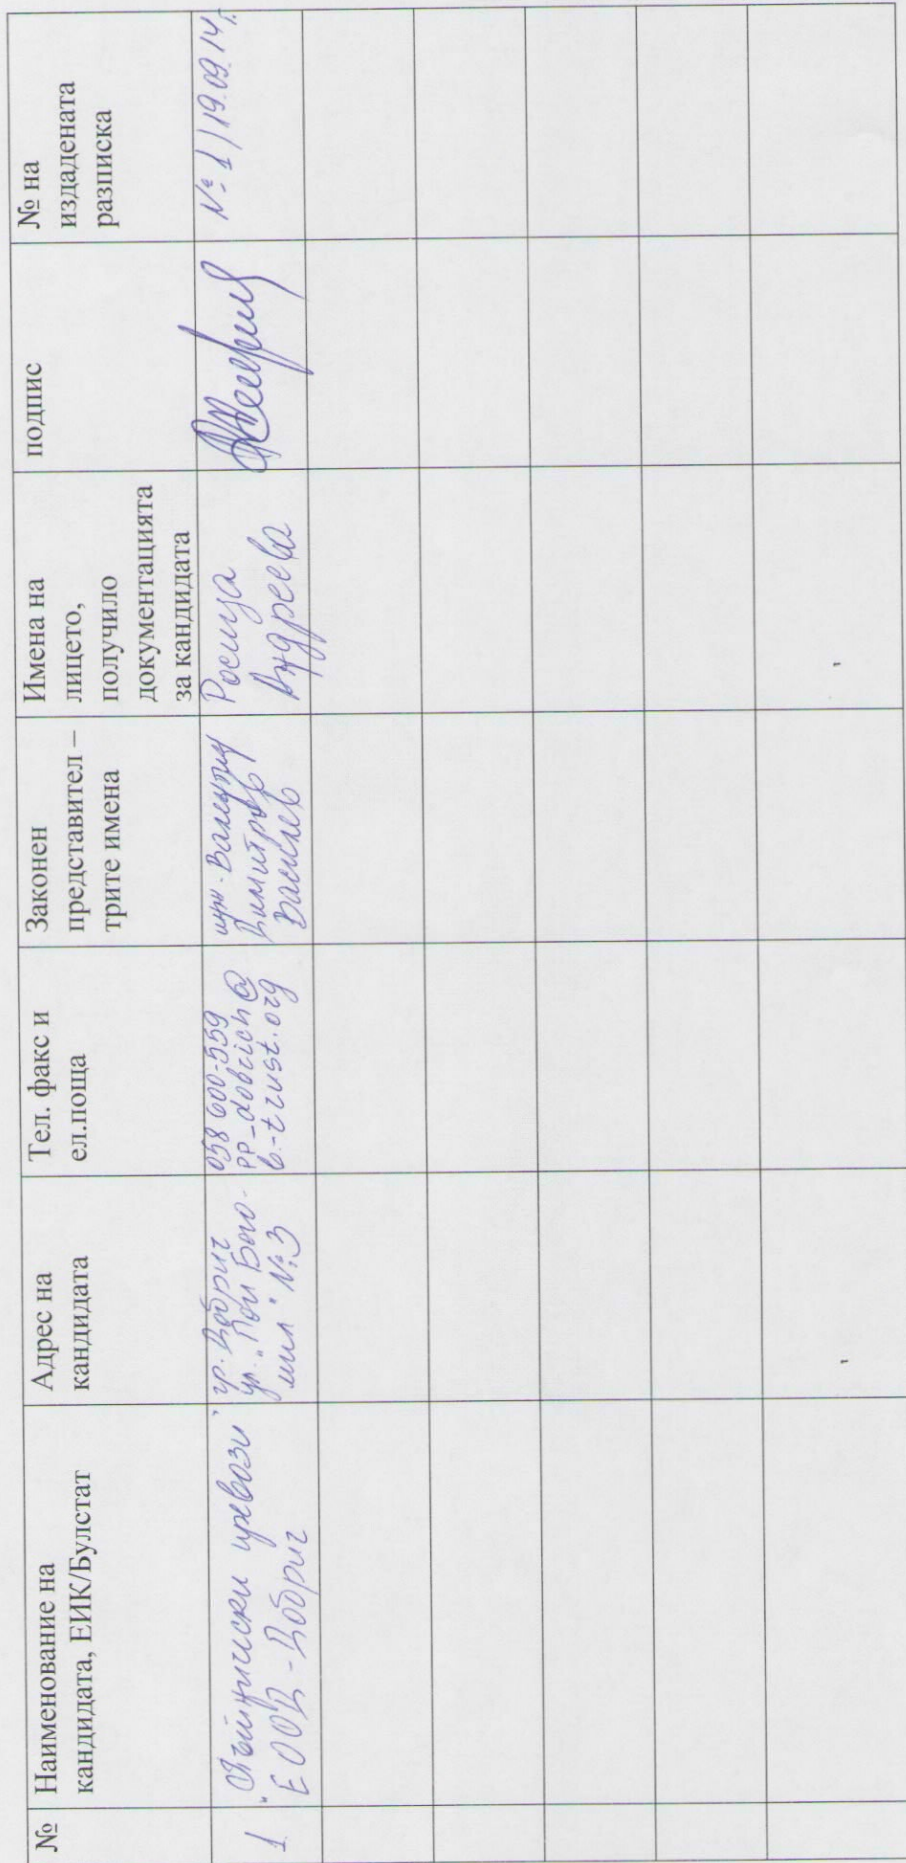 №
Наименование на
кандидата, ЕИК/Булстат
Адрес на
кандидата
Тел. факс и
ел.поща
Законен
представител –
трите имена
Имена на
лицето,
получило
документацията
за кандидата
подпис
№ на
издадената
разписка
1
превози"
ЕООД - Добрич
гр. Добрич
ул. "Поп Бого-
мил" №3
058 600-559
pp_dobrich@
b-trust.org
инж. Валентин
Димитров
Василев
Росица
Андреева
№ 1/19.09.14г.